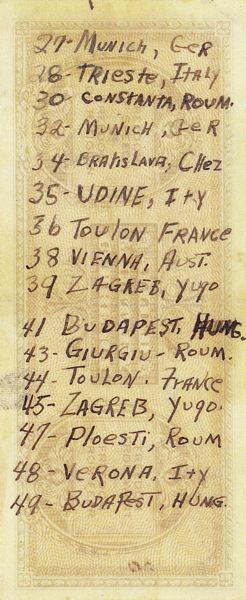 27- MUNICH, GER
28- TRIESTE, ITALY
30 CONSTANTA, ROUM.
32- MUNICH, GER
34- BRATISLAVA, CHEZ
35- UDINE, ITY
36 TOULON FRANCE
38 VIENNA, AUST.
39 ZAGREB, YUGO
41 BUDAPEST, HUNG.
43- GIURGIU- ROUM.
44- TOULON. FRANCE
45- ZAGREB, YUGO.
47- PLOESTI, ROUM
48- VERONA, ITY
49- BUDAPEST, HUNG.